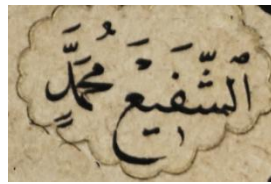 ٱلشَّفِيعُ مُحَمَّدٍ